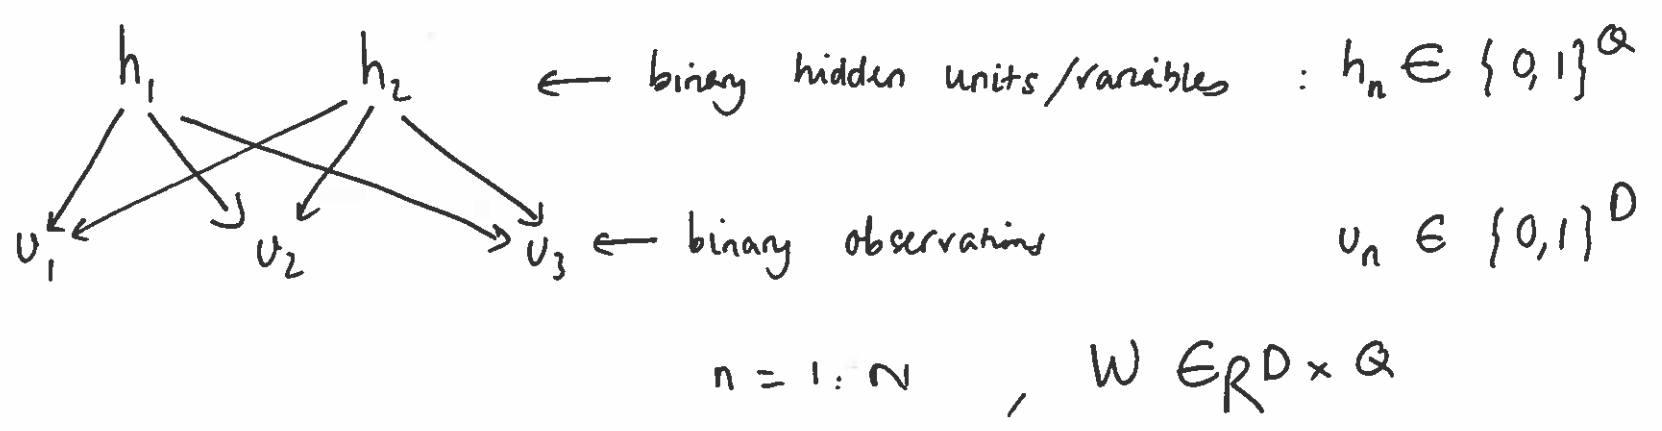 h₁ h₂ ← binary hidden units/variables : hₙ ∈ {0,1}^Q
v₁ v₂ v₃ ← binary observations vₙ ∈ {0,1}^D
n = 1:N , W ∈ R D × Q